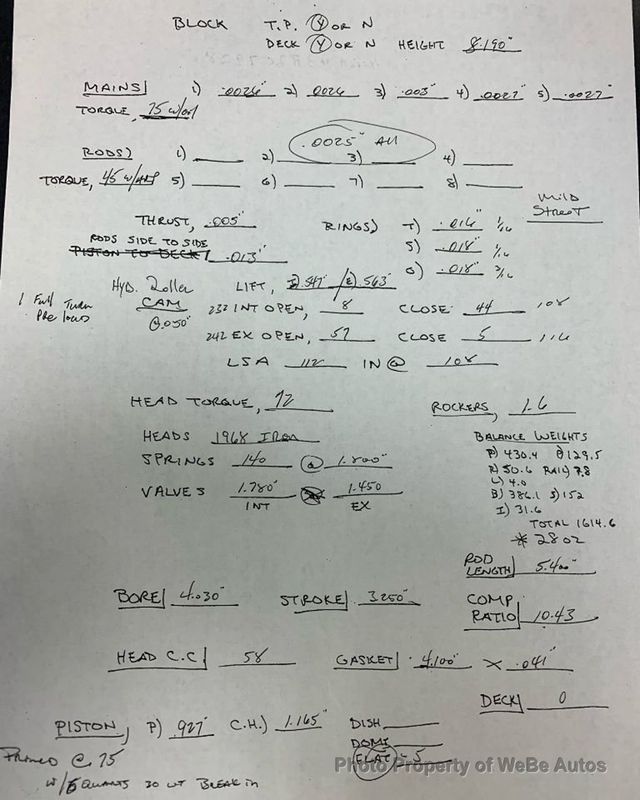 BLOCK T.P. Y OR N
DECK Y OR N HEIGHT 8.190"
MAINS 1) .0026" 2) .0026 3) .003" 4) .0027" 5) .0027"
TORQUE, 75 w/oil
.0025" All
RODS) 1) 2) 3) 4)
TORQUE, 45 w/ 5) 6) 7) 8)
Mild
Street
THRUST, .005" RINGS) T) .016" 1/16
RODS SIDE TO SIDE
PISTON TO DECK .013" S) .018" 1/16
O) .018" 3/16
Hyd. Roller LIFT, I .547" / E .563"
1 Full Turn
Pre load
CAM
@.050"
232 INT OPEN, 8 CLOSE 44 108
242 EX OPEN, 57 CLOSE 5 116
LSA 112 IN @ 108
HEAD TORQUE, 72 ROCKERS, 1.6
HEADS 1968 IRON
SPRINGS 140 @ 1.800"
VALVES 1.780" 1.450
INT EX
BALANCE WEIGHTS
P) 430.4 129.5
R) 50.6 RAIL) 7.8
L) 4.0
B) 386.1 S) 152
I) 31.6
TOTAL 1614.6
* 28 oz
ROD
LENGTH 5.400"
BORE 4.030" STROKE 3.250" COMP.
RATIO 10.43
HEAD C.C. 58 GASKET 4.100" X .041"
DECK 0
PISTON, P) .927" C.H.) 1.165" DISH
DOME
FLAT - 5
Primed @ 75
w/ 6 Quarts 30 wt Break in
Photo Property of WeBe Autos